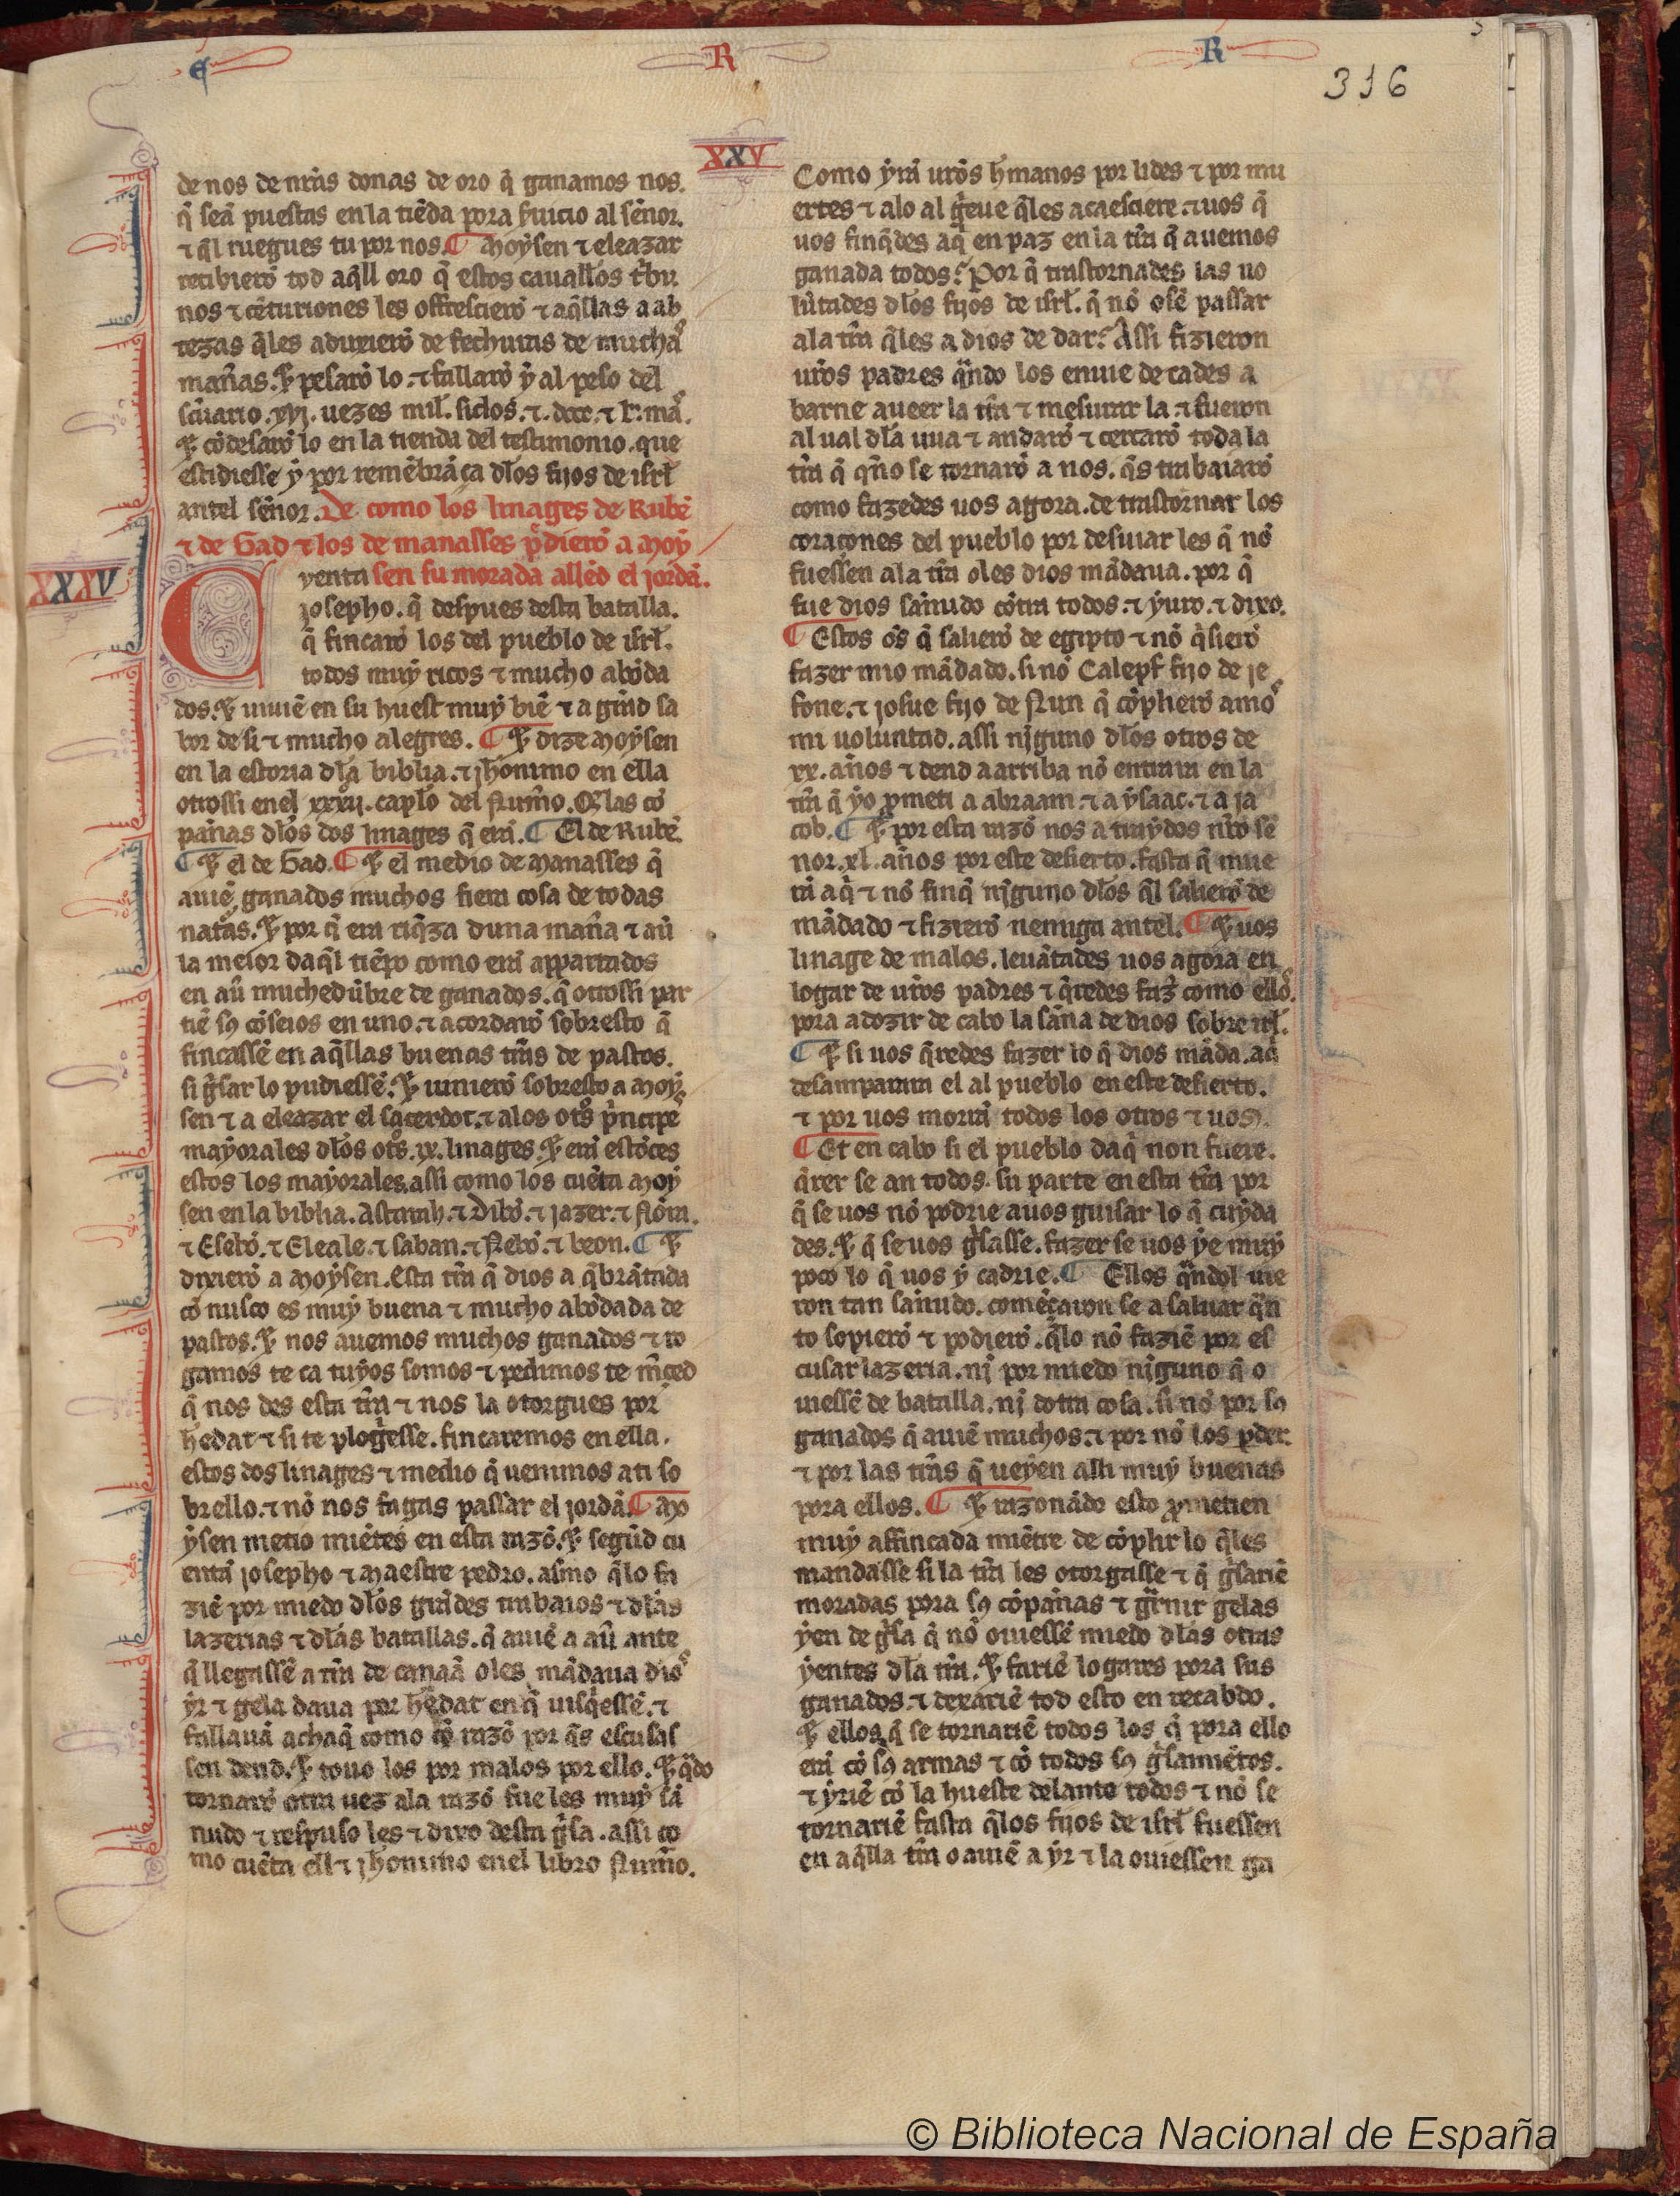 R
R
316
XXV
de nos de nr̃as donas de oro q̃ ganamos nos.
q̃ seã puestas en la tiẽda pora seruicio al sẽnor.
⁊ q̃l ruegues tu por nos. ¶ Moysen ⁊ eleazar
recibierõ tod aq̃ll oro q̃ estos cauallos tribu
nos ⁊ cẽturiones les offrescierõ ⁊ aq̃llas a ab
tezas q̃les aduxierõ de fechuras de muchas
mañas. ⁊ pesarõ lo. ⁊ fallarõ y al peso del
sc̃uario. xvj. uezes mil. siclos. ⁊. dcc. ⁊ l.
⁊ cõdesarõ lo en la tienda del testimonio. que
estidiesse y por remẽbrãça dlos fijos de isrl
antel sẽnor. De como los linages de Rubẽ
⁊ de Gad ⁊ los de manasses pidierõ a Moy
XXXV
Cuenta sen su morada allẽd el jordã.
josepho. q̃ despues desta batalla.
q̃ fincarõ los del pueblo de isrl.
todos muy ricos ⁊ mucho abõda
dos. ⁊ uiuiẽ en su huest muy biẽ ⁊ a grãd sa
bor de si ⁊ mucho alegres. ¶ ⁊ dize Moysen
en la estoria dla biblia. ⁊ jheronimo en ella
otrossi en el xxxij. caplo del Num̃o. Q̃ las cõ
pañas dlos dos linages q̃ erã. ¶ El de Rubẽ.
¶ ⁊ el de Gad. ¶ ⁊ el medio de Manasses q̃
auiẽ ganados muchos fiera cosa de todas
naturas. ⁊ por q̃ era riq̃za duna mañ̃a ⁊ aũ
la meior daq̃l tiẽpo como erã appartados
en aũ muchedũbre de ganados. q̃ otrossi par
tiẽ sus cõseios en uno. ⁊ acordarõ sobresto q̃
fincassẽ en aq̃llas buenas tr̃as de pastos.
si guisar lo pudiessẽ. ⁊ uinierõ sobresto a Moy
sen ⁊ a eleazar el sacerdot. ⁊ alos otros principes
mayorales dlos otros. ix. linages. ⁊ erã estõces
estos los mayorales assi como los cuẽta Moy
sen en la biblia. Astarah. ⁊ Dibõ. ⁊ jazer. ⁊ Nõra.
⁊ Esebõ. ⁊ Eleale. ⁊ saban. ⁊ Nebõ. ⁊ beon. ¶ ⁊
dixierõ a Moysen. Esta tr̃a q̃ dios a q̃brãtada
cõ nusco es muy buena ⁊ mucho abõdada de
pastos. ⁊ nos auemos muchos ganados ⁊ ro
gamos te ca tuyos somos ⁊ pedimos te merced
q̃ nos des esta tr̃a ⁊ nos la otorgues por
hedat ⁊ si te ploguiesse. fincaremos en ella.
estos dos linages ⁊ medio q̃ uenimos ati so
brello. ⁊ nõ nos fagas passar el jordã. ¶ Mo
ysen metio miẽtes en esta razõ. ⁊ segũd cu
entã josepho ⁊ Maestre pedro. asmo q̃lo fa
ziẽ por miedo dlos grãdes trabaios ⁊ dlas
lazerias ⁊ dlas batallas. q̃ auiẽ a aũ ante
q̃ llegassẽ a tr̃a de canaã oles mãdaua dios
yr ⁊ gela daua por hedat en q̃ uisq̃essẽ. ⁊
fallauã achaq̃ como cõ razõ por q̃s escusas
sen dend. ⁊ touo los por malos por ello. ⁊ q̃ndo
tornarõ otra uez ala razõ fue les muy sã
nudo ⁊ respuso les ⁊ dixo desta guisa. assi co
mo cuẽta ell ⁊ jheronimo en el libro Num̃o.
Como yrã uros hermanos por lides ⁊ por mu
ertes ⁊ alo al q̃ greue q̃les acaesciere. ⁊ uos q̃
uos finq̃des aq̃ en paz en la tr̃a q̃ auemos
ganada todos? Por q̃ trastornades las uo
lũtades dlos fijos de isrl. q̃ nõ osẽ passar
ala tr̃a q̃les a dios de dar? Assi fizieron
uros padres q̃ndo los enuie de cades a
barne aueer la tr̃a ⁊ mesurar la. ⁊ fueron
al ual dla uua ⁊ andarõ ⁊ cercarõ toda la
tr̃a q̃ q̃ño se tornarõ a nos. q̃s trabaiarõ
como fazedes uos agora. de trastornar los
coraçones del pueblo por desuiar les q̃ nõ
fuessen ala tr̃a oles dios mãdaua. por q̃
fue dios sañudo cõtra todos. ⁊ yuro. ⁊ dixo.
¶ Estos os q̃ salierõ de egipto ⁊ nõ q̃sierõ
fazer mio mãdado. si nõ Caleph fijo de je
fone. ⁊ josue fijo de Nun q̃ cõplierõ amos
mi uoluntad. assi njguno dlos otros de
xx. años ⁊ dend a arriba nõ entrara en la
tr̃a q̃ yo prometi a abraam. ⁊ a ysaac. ⁊ a ja
cob. ¶ ⁊ por esta razõ nos a traydos nr̃o sẽ
nor. xl. años por este desierto. fasta q̃ mue
rã aq̃ ⁊ nõ finq̃ njguno dlos q̃l salierõ de
mãdado ⁊ fizierõ nemiga antel. ¶ ⁊ uos
linage de malos. leuãtades uos agora en
logar de uros padres ⁊ q̃redes fazer como ellos.
pora adozir de cabo la saña de dios sobre isrl.
¶ ⁊ si uos q̃redes fazer lo q̃ dios mãda. aq̃
desamparara el al pueblo en este desierto.
⁊ por uos morrã todos los otros ⁊ uos.
¶ Et en cabo si el pueblo daq̃ non fuere.
q̃rer se an todos su parte en esta tr̃a por
q̃ se uos nõ podrie auos guisar lo q̃ cuyda
des. ⁊ q̃ se uos guisasse. fazer se uos ye muy
poco lo q̃ uos y cadrie. ¶ Ellos q̃ndol uie
ron tan sañudo. comẽçaron se a saluar q̃n
to sopierõ ⁊ podierõ. q̃lo nõ faziẽ por es
cusar lazeria. nj por miedo njguno q̃ o
uiessẽ de batalla. nj dotra cosa. si nõ por sus
ganados q̃ auiẽ muchos. ⁊ por nõ los perder.
⁊ por las tr̃as q̃ ueyen alli muy buenas
pora ellos. ¶ ⁊ razonãdo esto prometien
muy affincada miẽtre de cõplir lo q̃les
mandasse si la tr̃a les otorgasse ⁊ q̃ guisariẽ
moradas pora sus cõpañas ⁊ guarnir gelas
yen de guisa q̃ nõ ouiessẽ miedo dlas otras
yentes dla tr̃a. ⁊ fariẽ logares pora sus
ganados. ⁊ dexariẽ tod esto en recabdo.
⁊ ellos q̃ se tornariẽ todos los q̃ pora ello
erã cõ sus armas ⁊ cõ todos sus guisamiẽtos.
⁊ yriẽ cõ la hueste delante todos ⁊ nõ se
tornariẽ fasta q̃los fijos de isrl fuessen
en aq̃lla tr̃a o auiẽ a yr ⁊ la ouiessen ga
© Biblioteca Nacional de España